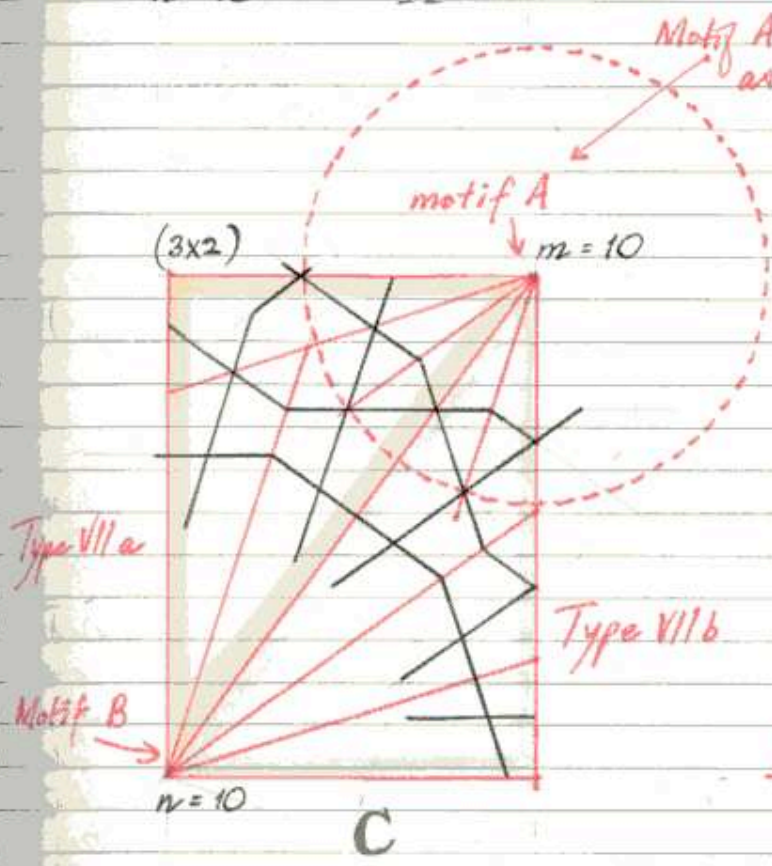 Motif A
motif A
(3x2)
m = 10
Type VII a
Type VII b
Motif B
n = 10
C